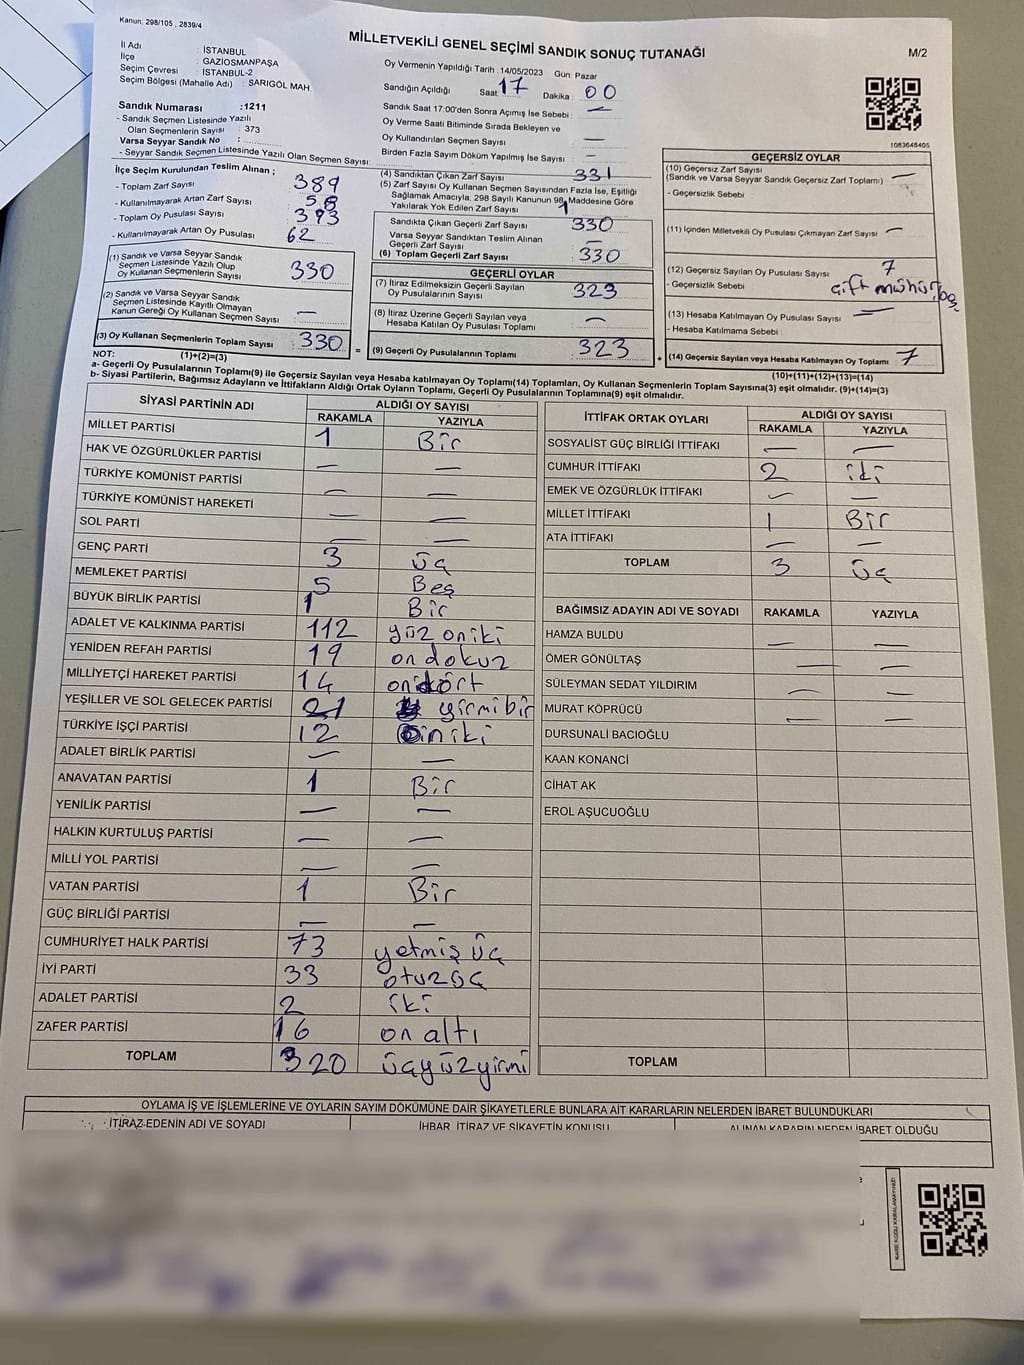 Kanun: 298/105 , 2839/4
MİLLETVEKİLİ GENEL SEÇİMİ SANDIK SONUÇ TUTANAĞI
M/2
İl Adı : İSTANBUL
İlçe : GAZİOSMANPAŞA
Seçim Çevresi : İSTANBUL-2
Seçim Bölgesi (Mahalle Adı) : SARIGÖL MAH.
Sandık Numarası :1211
- Sandık Seçmen Listesinde Yazılı
Olan Seçmenlerin Sayısı : 373
Varsa Seyyar Sandık No :
- Seyyar Sandık Seçmen Listesinde Yazılı Olan Seçmen Sayısı:
Oy Vermenin Yapıldığı Tarih : 14/05/2023 Gün: Pazar
Sandığın Açıldığı Saat: 17 Dakika : 00
Sandık Saat 17:00'den Sonra Açımış İse Sebebi : —
Oy Verme Saati Bitiminde Sırada Bekleyen ve
Oy Kullandırılan Seçmen Sayısı —
Birden Fazla Sayım Döküm Yapılmış İse Sayısı —
1083648405
İlçe Seçim Kurulundan Teslim Alınan ;
- Toplam Zarf Sayısı 389
- Kullanılmayarak Artan Zarf Sayısı 58
- Toplam Oy Pusulası Sayısı 393
- Kullanılmayarak Artan Oy Pusulası 62
(1) Sandık ve Varsa Seyyar Sandık
Seçmen Listesinde Yazılı Olup
Oy Kullanan Seçmenlerin Sayısı 330
(2) Sandık ve Varsa Seyyar Sandık
Seçmen Listesinde Kayıtlı Olmayan
Kanun Gereği Oy Kullanan Seçmen Sayısı —
(3) Oy Kullanan Seçmenlerin Toplam Sayısı 330 =
(4) Sandıktan Çıkan Zarf Sayısı 331
(5) Zarf Sayısı Oy Kullanan Seçmen Sayısından Fazla İse, Eşitliği
Sağlamak Amacıyla, 298 Sayılı Kanunun 98. Maddesine Göre
Yakılarak Yok Edilen Zarf Sayısı 1
Sandıkta Çıkan Geçerli Zarf Sayısı 330
Varsa Seyyar Sandıktan Teslim Alınan
Geçerli Zarf Sayısı —
(6) Toplam Geçerli Zarf Sayısı 330
GEÇERLİ OYLAR
(7) İtiraz Edilmeksizin Geçerli Sayılan
Oy Pusulalarının Sayısı 323
(8) İtiraz Üzerine Geçerli Sayılan veya
Hesaba Katılan Oy Pusulası Toplamı —
(9) Geçerli Oy Pusulalarının Toplamı 323 +
GEÇERSİZ OYLAR
(10) Geçersiz Zarf Sayısı
(Sandık ve Varsa Seyyar Sandık Geçersiz Zarf Toplamı) —
- Geçersizlik Sebebi
(11) İçinden Milletvekili Oy Pusulası Çıkmayan Zarf Sayısı —
(12) Geçersiz Sayılan Oy Pusulası Sayısı 7
- Geçersizlik Sebebi : çift mühür,
(13) Hesaba Katılmayan Oy Pusulası Sayısı —
- Hesaba Katılmama Sebebi :
(14) Geçersiz Sayılan veya Hesaba Katılmayan Oy Toplamı 7
NOT: (1)+(2)=(3)
(10)+(11)+(12)+(13)=(14)
a- Geçerli Oy Pusulalarının Toplamı(9) ile Geçersiz Sayılan veya Hesaba katılmayan Oy Toplamı(14) Toplamları, Oy Kullanan Seçmenlerin Toplam Sayısına(3) eşit olmalıdır. (9)+(14)=(3)
b- Siyasi Partilerin, Bağımsız Adayların ve İttifakların Aldığı Ortak Oyların Toplamı, Geçerli Oy Pusulalarının Toplamına(9) eşit olmalıdır.
SİYASİ PARTİNİN ADI ALDIĞI OY SAYISI
RAKAMLA YAZIYLA
MİLLET PARTİSİ 1 Bir
HAK VE ÖZGÜRLÜKLER PARTİSİ — —
TÜRKİYE KOMÜNİST PARTİSİ — —
TÜRKİYE KOMÜNİST HAREKETİ — —
SOL PARTİ — —
GENÇ PARTİ 3 üç
MEMLEKET PARTİSİ 5 Beş
BÜYÜK BİRLİK PARTİSİ 1 Bir
ADALET VE KALKINMA PARTİSİ 112 yüz oniki
YENİDEN REFAH PARTİSİ 19 on dokuz
MİLLİYETÇİ HAREKET PARTİSİ 14 ondört
YEŞİLLER VE SOL GELECEK PARTİSİ 21 yirmibir
TÜRKİYE İŞÇİ PARTİSİ 12 oniki
ADALET BİRLİK PARTİSİ — —
ANAVATAN PARTİSİ 1 Bir
YENİLİK PARTİSİ — —
HALKIN KURTULUŞ PARTİSİ — —
MİLLİ YOL PARTİSİ — —
VATAN PARTİSİ 1 Bir
GÜÇ BİRLİĞİ PARTİSİ — —
CUMHURİYET HALK PARTİSİ 73 yetmiş üç
İYİ PARTİ 33 otuzüç
ADALET PARTİSİ 2 iki
ZAFER PARTİSİ 16 on altı
TOPLAM 320 üçyüzyirmi
İTTİFAK ORTAK OYLARI ALDIĞI OY SAYISI
RAKAMLA YAZIYLA
SOSYALİST GÜÇ BİRLİĞİ İTTİFAKI — —
CUMHUR İTTİFAKI 2 iki
EMEK VE ÖZGÜRLÜK İTTİFAKI — —
MİLLET İTTİFAKI 1 Bir
ATA İTTİFAKI — —
TOPLAM 3 üç
BAĞIMSIZ ADAYIN ADI VE SOYADI RAKAMLA YAZIYLA
HAMZA BULDU — —
ÖMER GÖNÜLTAŞ — —
SÜLEYMAN SEDAT YILDIRIM — —
MURAT KÖPRÜCÜ — —
DURSUNALİ BACIOĞLU
KAAN KONANCİ
CİHAT AK
EROL AŞUCUOĞLU
TOPLAM
OYLAMA İŞ VE İŞLEMLERİNE VE OYLARIN SAYIM DÖKÜMÜNE DAİR ŞİKAYETLERLE BUNLARA AİT KARARLARIN NELERDEN İBARET BULUNDUKLARI
İTİRAZ EDENİN ADI VE SOYADI İHBAR, İTİRAZ VE ŞİKAYETİN KONUSU ALINAN KARARIN NEDEN İBARET OLDUĞU